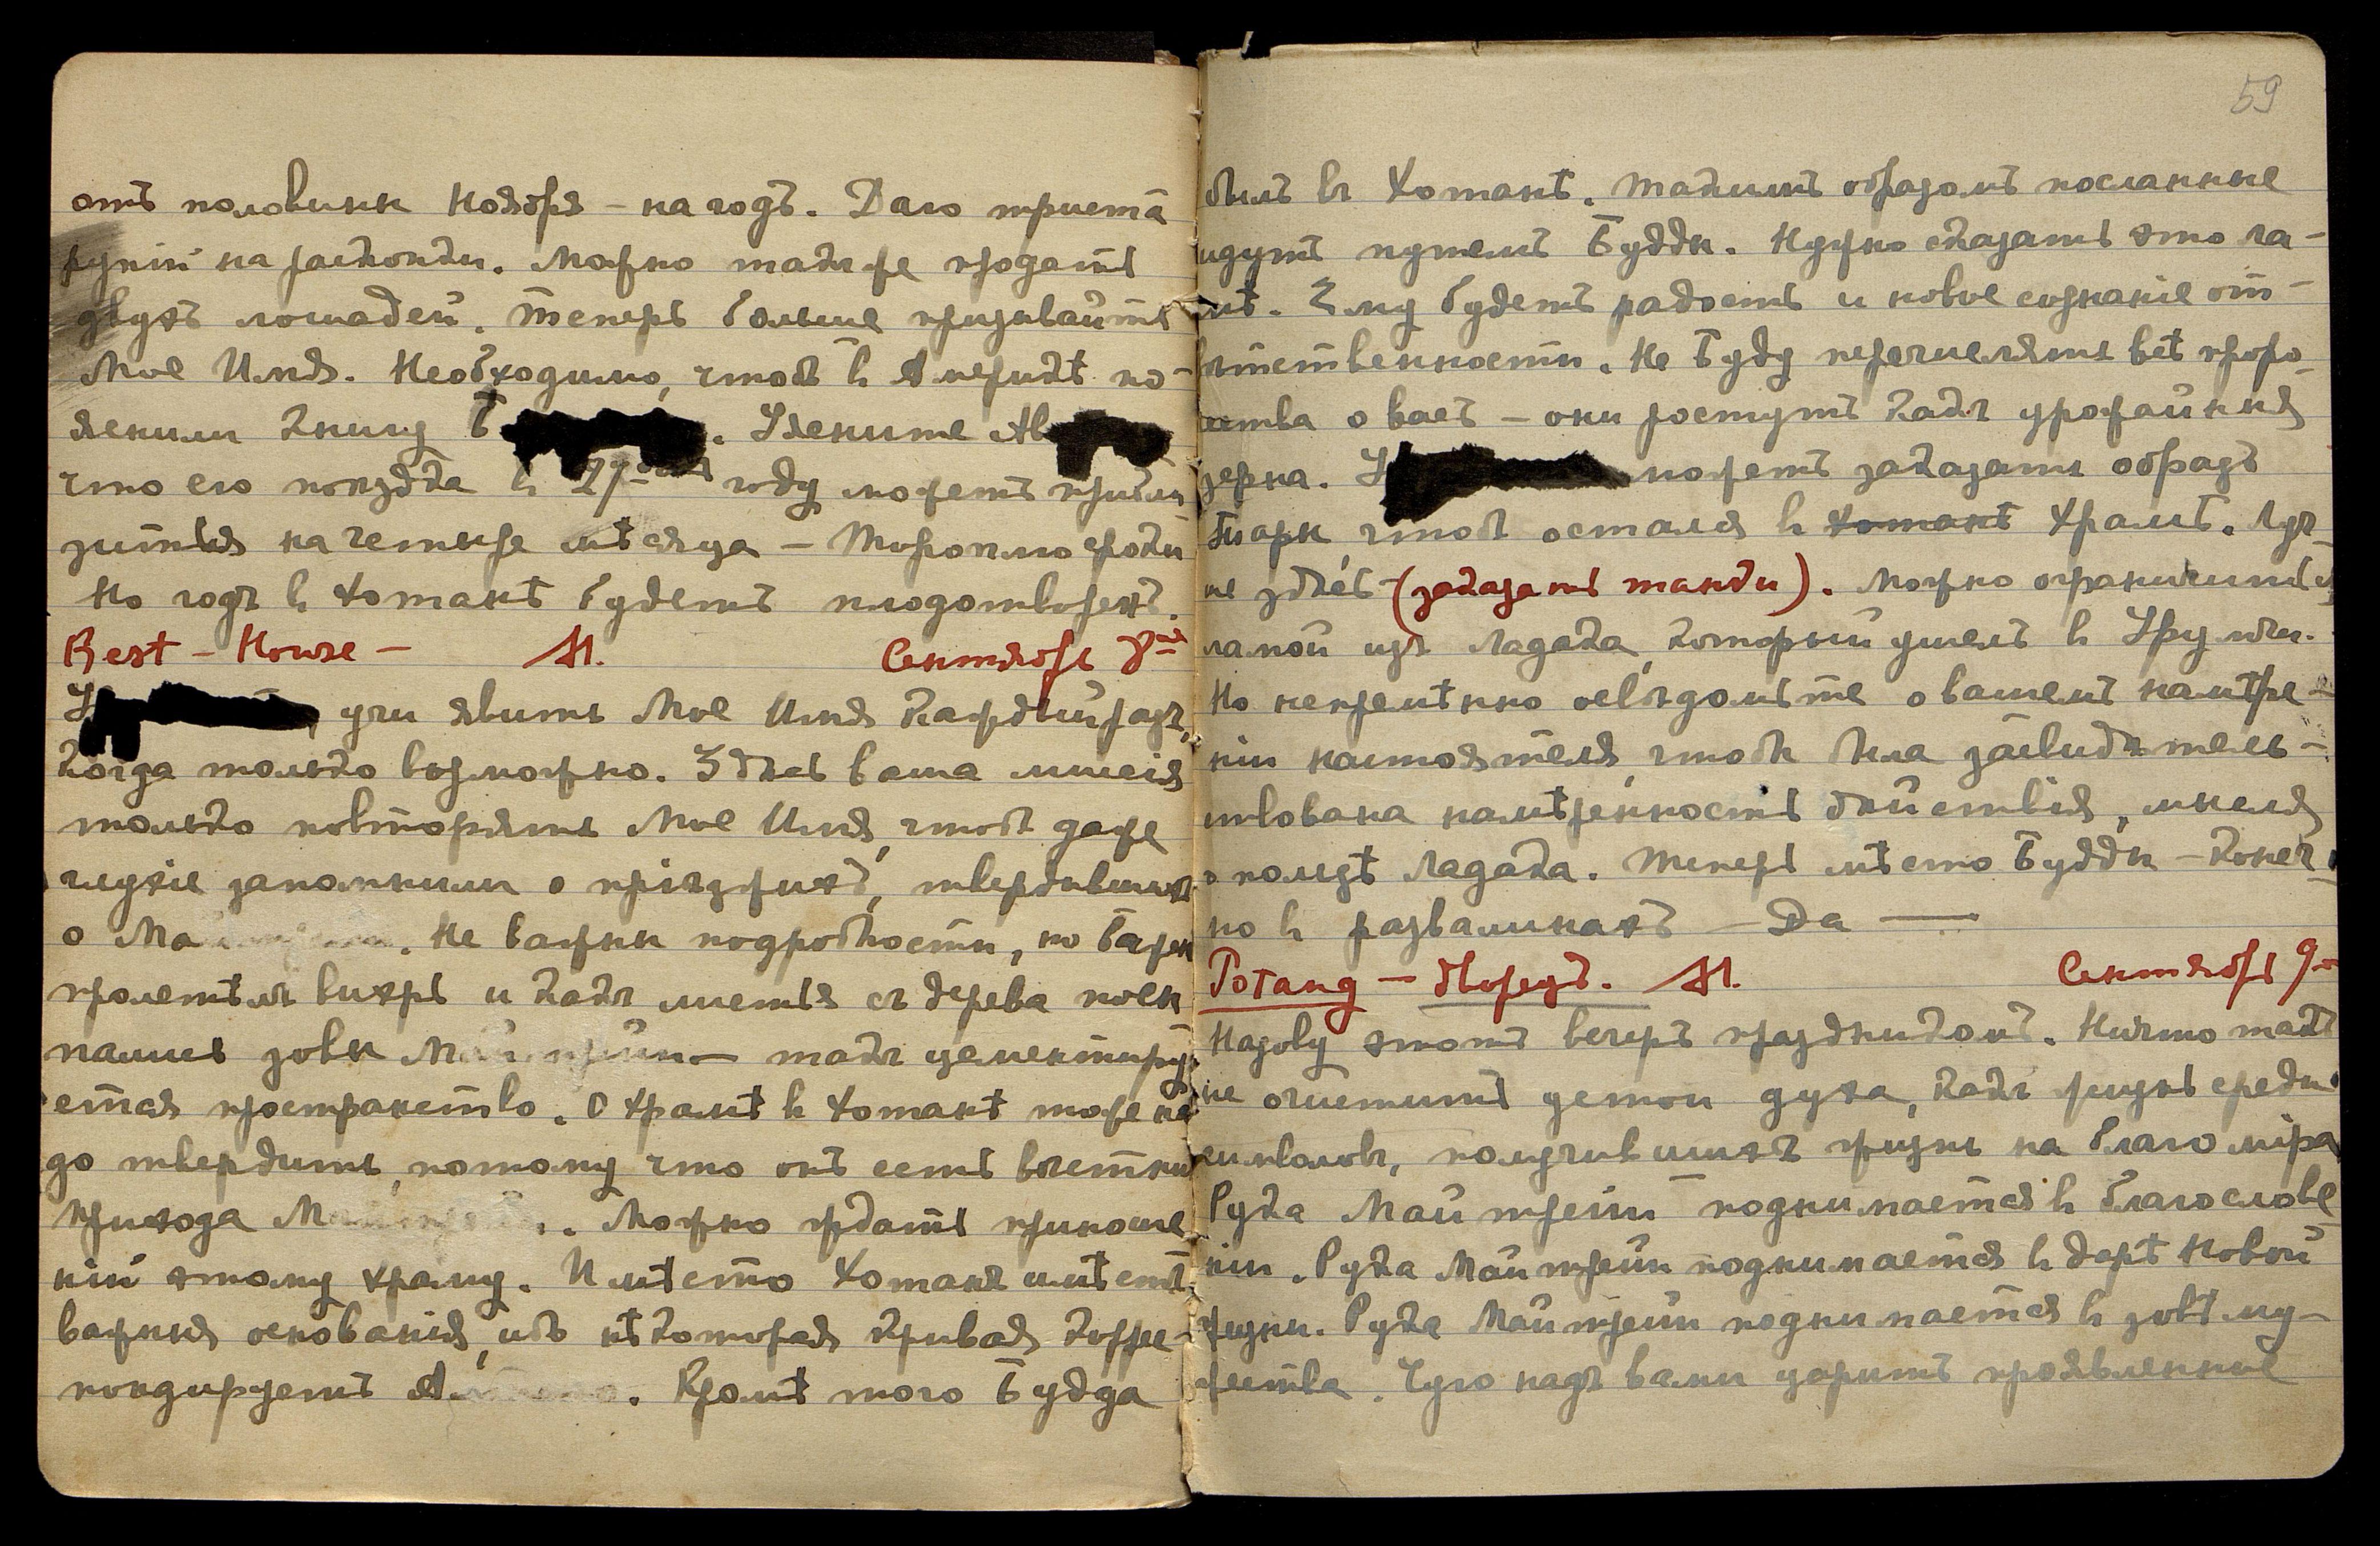 59
отъ половины Ноября – на годъ. Даю триста
рупій на раскопки. Можно также продать
двухъ лошадей. Теперь больше призывайте
Мое Имя. Необходимо, чтобъ въ Америкѣ по-
яснили книгу Б. Уясните Ав
что его поѣздка въ 27-омъ году можетъ прибли
зиться на четыре мѣсяца – Тороплю сроки
Но годъ въ Хотанѣ будетъ плодотворенъ.
Rest – House – М. Сентябрь 8
У, учи явить Мое Имя каждый разъ,
когда только возможно. Здѣсь ваша миссія
только повторять Мое Имя, чтобъ даже
глухіе запомнили о пріѣзжихъ, твердившихъ
о Ма. Не важны подробности, но важен
пролетѣлъ вихрь и какъ листья съ дерева посы
пались зовы Майтрейи – такъ цементиру
ется пространство. О храмѣ въ Хотанѣ тоже на
до твердить, потому что онъ есть вѣстник
прихода М. Можно ждать приноше
ній этому храму. И мѣсто Хотанъ имѣетъ
важныя основанія, ибо нѣкоторая кривая корре-
пондируетъ А. Кромѣ того Будда
былъ въ Хотанѣ. Такимъ образомъ посланные
идутъ путемъ Будды. Нужно сказать это ла-
мѣ. Ему будетъ радость и новое сознаніе от-
вѣтственности. Не буду перечислять всѣ проро
чества о васъ – они ростутъ какъ урожайныя
зерна. У можетъ заказать образъ
Тары, чтобъ остался въ Хотанѣ Храмѣ. Луч
ше здѣсь – (заказать танки). Можно ограничиться
ламой изъ Ладака, который ушелъ въ Урумчи.
Но непремѣнно освѣдомьте о вашемъ намѣре-
ніи настоятеля, чтобы была засвидѣтель-
ствована намѣренность дѣйствія, мысля
о пользѣ Ладака. Теперь мѣсто Будды – конеч
но въ развалинахъ – Да —
Ротанд – Порезъ. М. Сентябрь 9
Назову этотъ вечеръ праздникомъ. Ничто такъ
не очиститъ устои духа, какъ жизнь среди
символовъ, получившихъ жизнь на благо міра
Рука Майтрейи поднимается въ благослове
ніи. Рука Майтрейи поднимается въ дарѣ Новой
жизни. Рука Майтрейи поднимается въ зовѣ му-
жества. Чую надъ вами царитъ проявленное